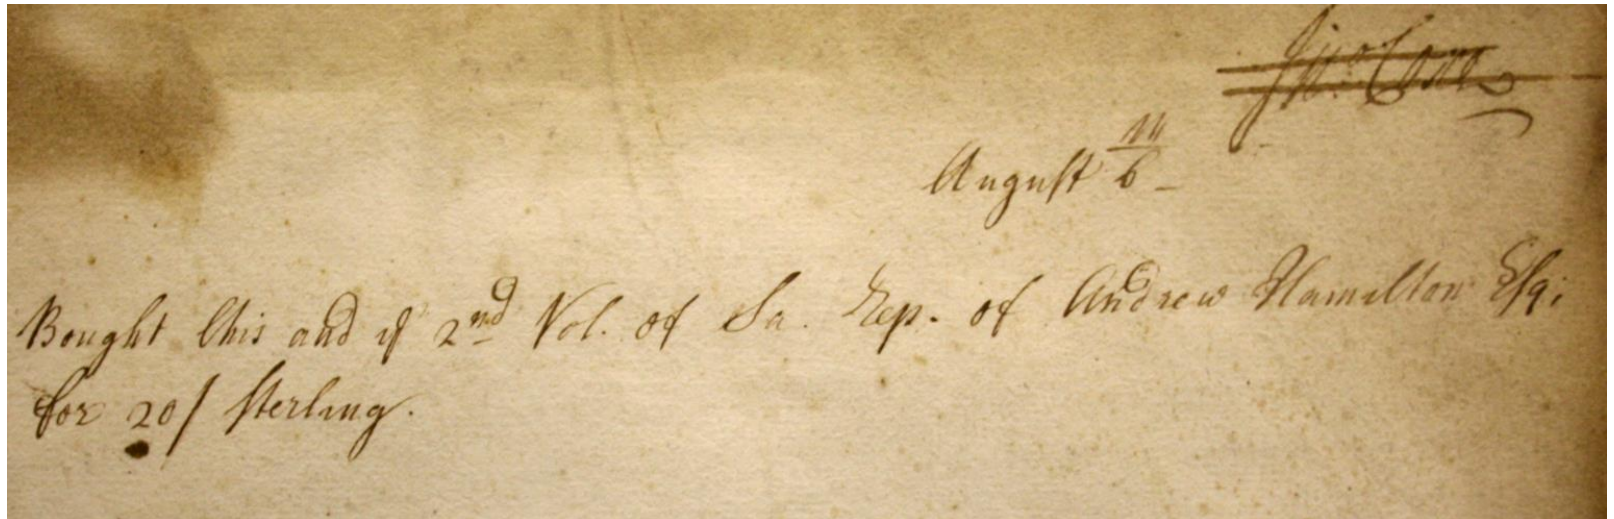 Jno. Coxe
August 6
Bought this and ye 2nd Vol. of Sa. Rep. of Andrew Hamilton Esq;
for 20/ Sterling.